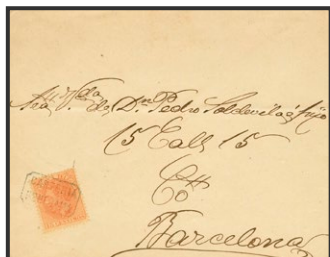 Sra. Vda. de Dn Pedro Soldevila é hijo
15 Call 15
Barcelona